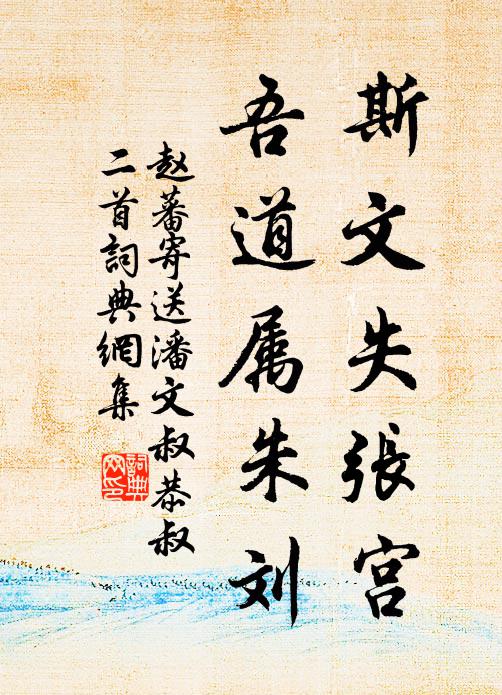 斯文失張宫
吾道属朱刘
赵蕃寄送潘文叔恭叔
二首詞典網集
詞典网印